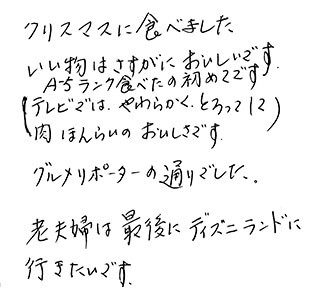 クリスマスに食べました
いい物はさすがにおいしいです.
A-5ランク食べたの初めてです
(テレビでは、やわらかく、とろって12)
肉ほんらいのおいしさです.
グルメリポーターの通りでした..
老夫婦は最後にディズニランドに
行きたいです.